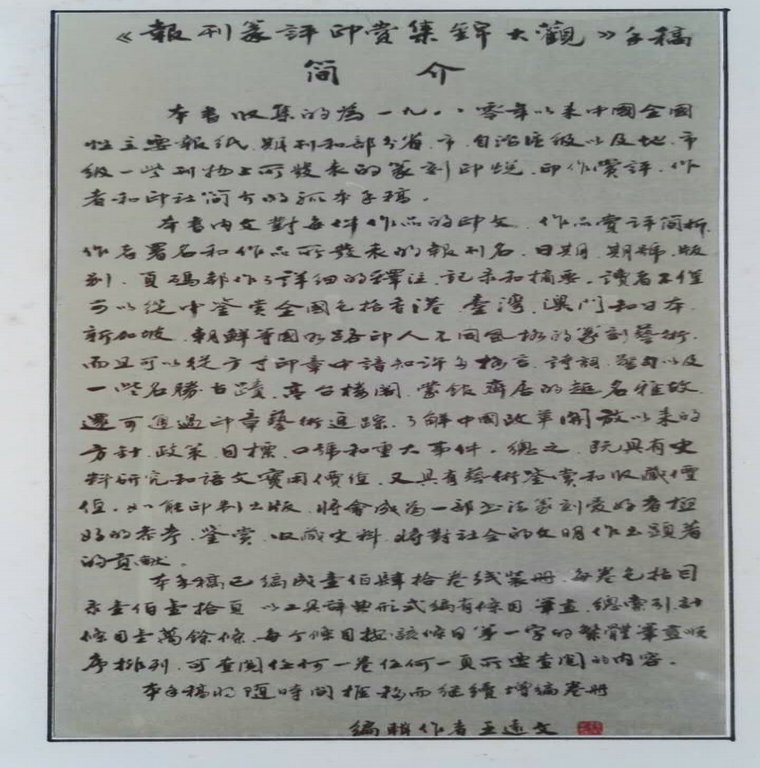 《報刊篆評印赏集錦大觀》手稿
简 介
本書收集的為一九八零年以来中國全國
性主要報纸、期刊和部分省、市、自治區级以及地、市
级一些刊物上所發表的篆刻印蜕、印作賞評、作
者和印社简介的孤本手稿。
本書内文對每件作品的印文、作品賞評简析、
作者署名和作品所發表的報刊名、日期、期號、版
别、頁碼都作了詳细的釋注、記录和摘要。讀者不僅
可以從中鉴赏全國包括香港、臺灣、澳门和日本、
新加坡、朝鮮等國的路印人不同風格的篆刻藝術，
而且可以從方寸印章中諳知許多格言、詩詞、以及
一些名勝古蹟、亭台楼阁、堂館齋居的趣名雅故，
還可通過印章藝術追踪、了解中國改革開放以来的
方針、政策、目標、口號和重大事件。總之，既具有史
料研究和語文實用價值，又具有藝術鉴赏和收藏價
值。如能印刷出版，将會成為一部书法篆刻爱好者極
好的参考、鉴赏、收藏史料，将對社会的文明作出顯著
的貢献。
本手稿已编成壹佰肆拾卷线装册，每卷包括目
录壹佰壹拾頁，以工具辞典形式编有條目筆畫總索引，計
條目壹萬餘條，每个條目按該條目第一字的繁體筆畫順
序排列，可查閲任何一卷任何一頁所要查閲的内容。
本手稿将隨時間推移而继續增编卷册
编辑作者王遠文